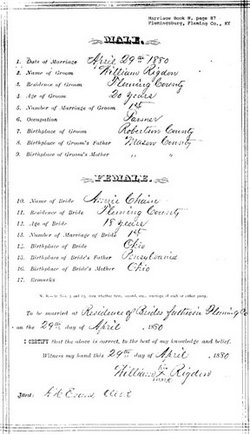 Marriage Book N, page 87
Flemingsburg, Fleming Co., KY
MALE.
1. Date of Marriage April 29th 1880
2. Name of Groom William Rigdon
3. Residence of Groom Fleming County
4. Age of Groom 20 years
5. Number of Marriage of Groom 1st
6. Occupation Farmer
7. Birthplace of Groom Robertson County
8. Birthplace of Groom's Father Mason County
9. Birthplace of Groom's Mother " "
FEMALE.
10. Name of Bride Annie Chain
11. Residence of Bride Fleming County
12. Age of Bride 18 years
13. Number of Marriage of Bride 1st
14. Birthplace of Bride Ohio
15. Birthplace of Bride's Father Pennsylvania
16. Birthplace of Bride's Mother Ohio
17. Remarks
To be married at Residence of Brides father in Fleming Co
on the 29th day of April, 1880
I CERTIFY that the above is correct, to the best of my knowledge and belief.
Witness my hand this 29th day of April, 1880
his
William X Rigdon
mark
Clerk